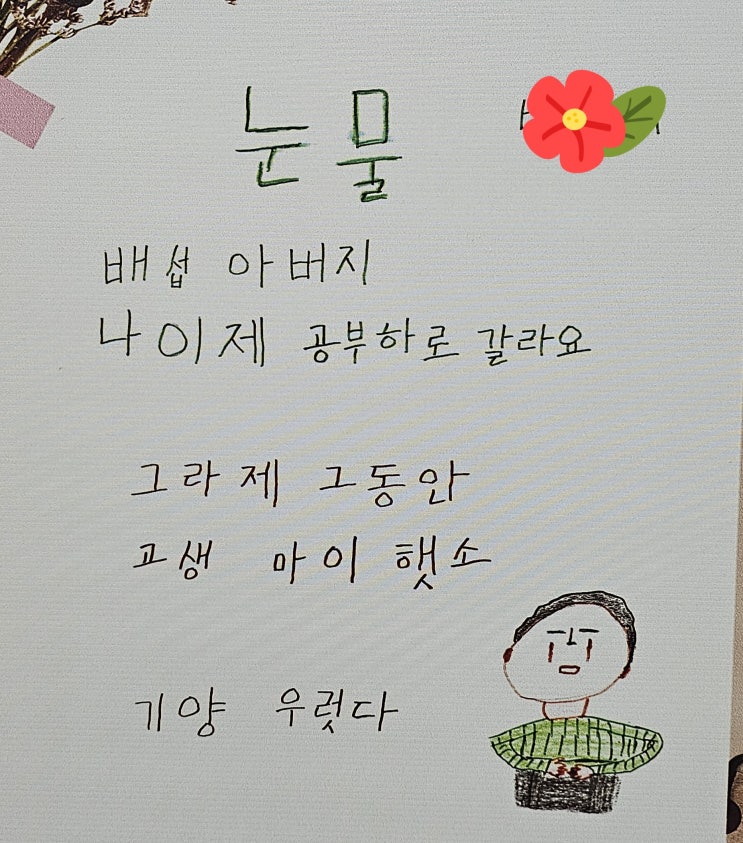 눈물
배섭 아버지
나 이제 공부하로 갈라요
그라제 그동안
고생 마이 햇소
기양 우럿다